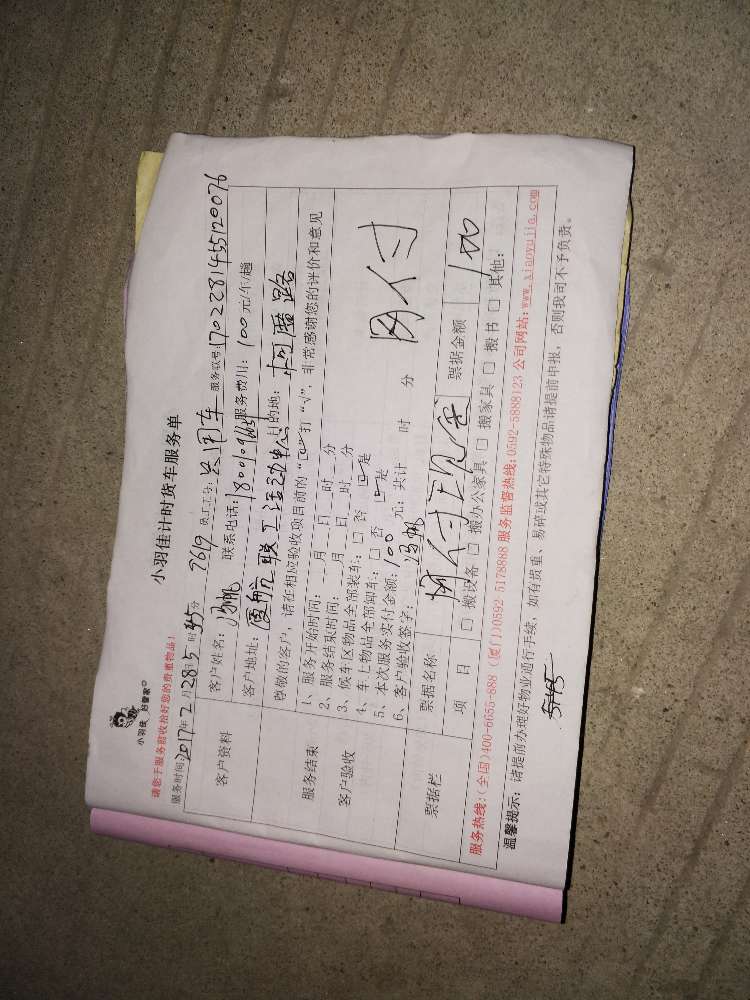 小羽佳计时货车服务单
小羽佳，好管家
请您于服务前收拾好您的贵重物品！
服务时间：2017年2月28日15时45分 7619 员工工号： 服务单号：1702281455120076
客户资料
客户姓名：冯帆 联系电话： 服务费用：100元/车/趟
客户地址：厦航职工活动中心 目的地：
尊敬的客户，请在相应验收项目前的“□”打“√”，非常感谢您的评价和意见
服务结束
客户验收
1、服务开始时间：__月__日__时__分
2、服务结束时间：__月__日__时__分
3、候车区物品全部装车：□否 ☑是
4、车上物品全部卸车：□否 ☑是
5、本次服务实付金额：100元；共计 时 分
6、客户验收签字：冯帆
网付
票据栏
票据名称 网付现金 票据金额 100
项 目 □搬设备 □搬办公家具 □搬家具 □搬书 □其他：
服务热线：(全国)400-6655-888 (厦门)0592-5178888 服务监督热线：0592-5888123 公司网站：www.xiaoyujia.com
温馨提示：请提前办理好物业通行手续，如有贵重、易碎或其它特殊物品请提前申报，否则我司不予负责。